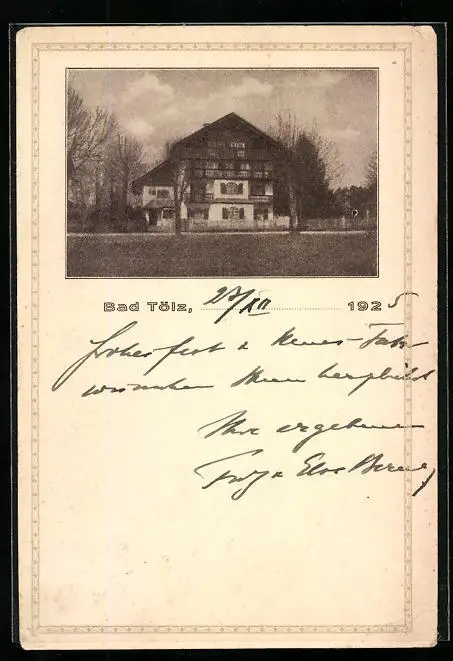 Bad Tölz, 27/XII 1925
Frohes Fest & Neues-Jahr
wünschen Ihnen herzlichst
Ihre ergebenen
& Else